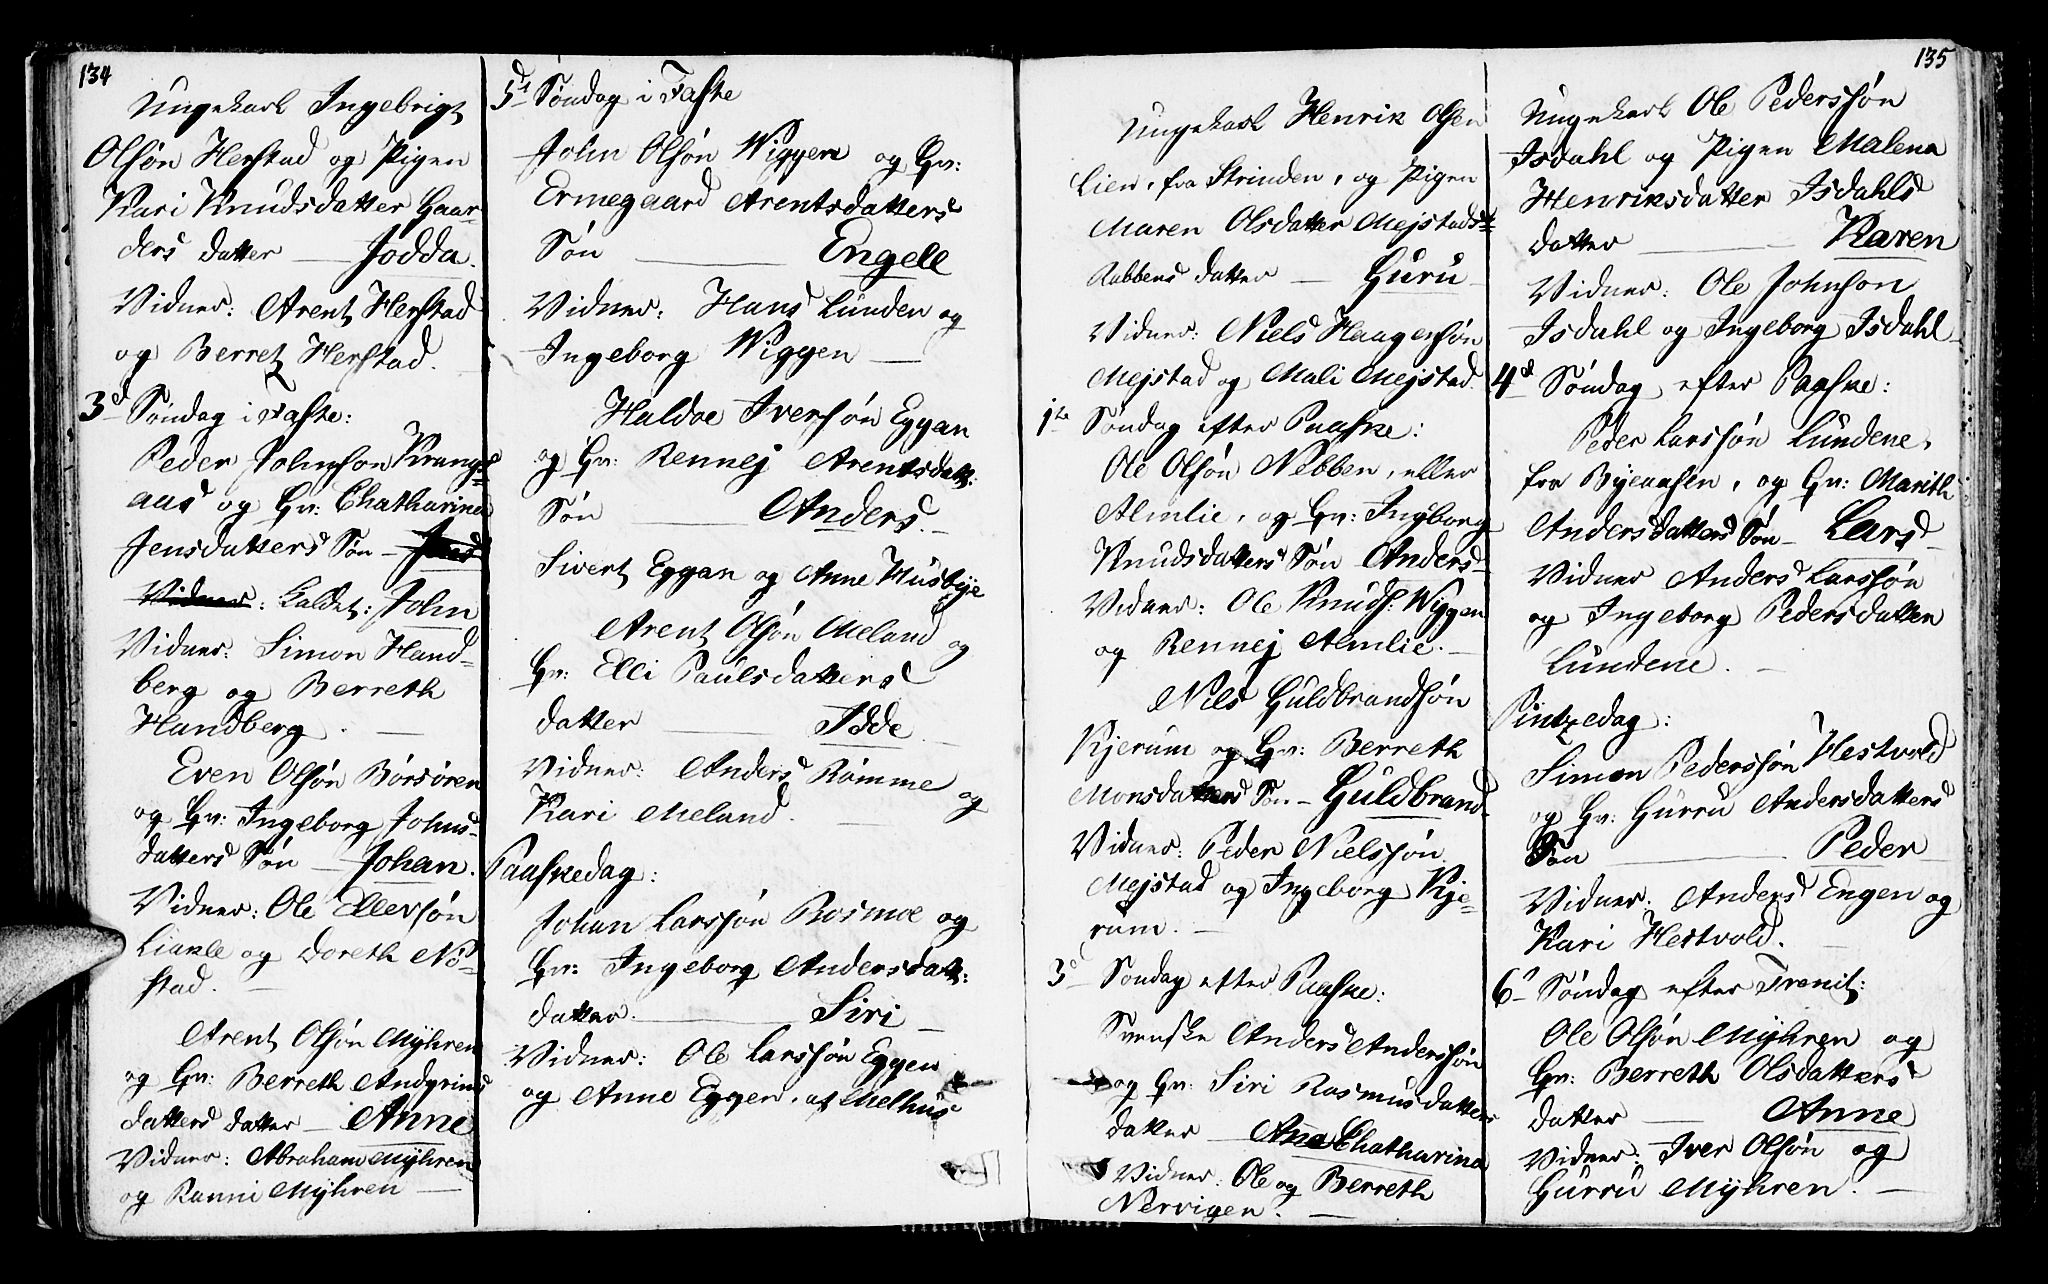 134
Ungekarl Ingebrigt
Olsön Herstad og Pigen
Kari Knudsdatter Gaar-
ders datter — Jodda.
Vidner: Arent Herstad
og Berret Herstad.
3d Söndag i Faste:
Peder Johnson Krangs-
aas og Gv: Chatharina
Jensdatters Sön —
Vidner: kaldet: John
Vidner: Simon Hand-
berg og Berreth
Handberg. —
Even Olsön Börsören
og Gv: Ingeborg Johns-
datters Sön — Johan.
Vidner: Ole Ellersön
Liakle og Doreth Nö-
stad. —
Arent Olsön Myhren
og Gv: Berreth Andgrims
datters datter — Anne
Vidner: Abraham Myhren
og Ranni Myhren —
5t Söndag i Faste
John Olsön Wiggen og Gv:
Ermegaard Arentsdatters
Sön — Engell
Vidner: Hans Lunden og
Ingeborg Wiggen —
Haldoe Iversön Eggan
og Gv: Rennej Arentsdatt:
Sön — Anders. —
Sivert Eggan og Anne Husbye
Arent Olsön Meland og
Gv: Elli Paulsdatters
datter — Idde. —
Vidner: Anders Römme og
Kari Meland. —
Paaskedag:
Johan Larssön Rosmoe og
Gv: Ingeborg Andersdatt:
datter. — Siri —
Vidner: Ole Larssön Eggen
og Anne Eggen, af Melhus
135
Ungekarl Henrik Olsen
Lien, fra Strinden, og Pigen
Maren Olsdatter Mejstads-
Rabbens datter — Guru —
Vidner: Niels Haagensön
Mejstad og Mali Mejstad.
1te Söndag efter Paaske:
Ole Olsön Nebben, eller
Almlie, og Gv: Ingborg
Knudsdatters Sön Anders —
Vidner: Ole Knuds: Wiggen
og Rennej Almlie. —
Niels Guldbrandsön
Kjerum og Gv: Berreth
Monsdatters Sön — Guldbrand.
Vidner: Peder Nielssön
Mejstad og Ingeborg Kje-
rum. —
3d Söndag efter Paaske:
Svenske Anders Anderssön
og Gv: Siri Rasmusdatters
datter — Ana Chatharina
Vidner: Ole og Berreth
Nervigen. —
Ungekarl Ole Pederssön
Isdahl og Pigen Malena
Henriksdatter Isdahls
datter — Karen
Vidner: Ole Johnson
Isdahl og Ingeborg Isdahl —
4d Söndag efter Paaske:
Peder Larssön Lundene,
fra Byeaasen, og Gv: Marith
Andersdatters Sön — Lars —
Vidner Anders Larssön
og Ingeborg Pedersdatter
Lundene. —
Pintzedag:
Simon Pederssön Hestvold
og Gv: Gurru Andersdatters
Sön — Peder
Vidner: Anders Engen og
Kari Hestvold. —
6t Söndag efter Trenit:
Ole Olsön Myhren og
Gv: Berreth Olsdatters
datter — Anne
Vidner: Iver Olsön og
Gurru Myhren. —